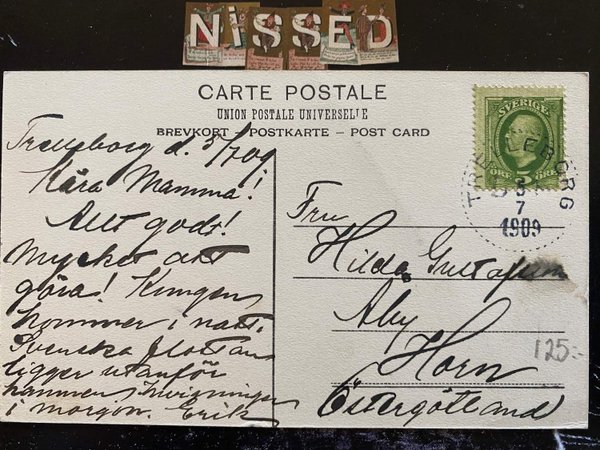 NiSSED
CARTE POSTALE
UNION POSTALE UNIVERSELLE
BREVKORT – POSTKARTE – POST CARD
SVERIGE
5
ÖRE ÖRE
TRELLEBORG
5
7
1909
Trelleborg d. 5/7 09
Kära Mamma!
Allt godt!
Mycket att
göra! Kungen
kommer i natt.
Svenska flottan
ligger utanför
hamnen. Invigningen
i morgon. Erik
Fru
Hilda Gustafsson
Aby
Horn
Östergötland
125:-